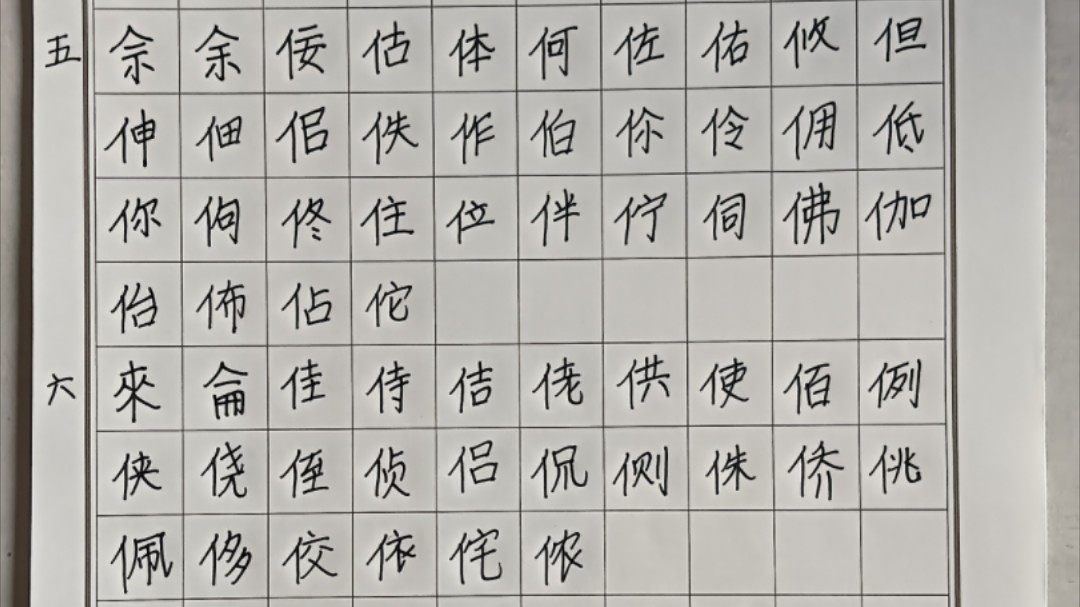 五 佘余佞估体何佐佑攸但
伸佃佀佚作伯伱伶佣低
你佝佟住位伴佇伺佛伽
佁佈佔佗
六 來侖佳侍佶佬供使佰例
侠侥侄侦侣侃侧侏侨佻
佩侈佼依侘侬